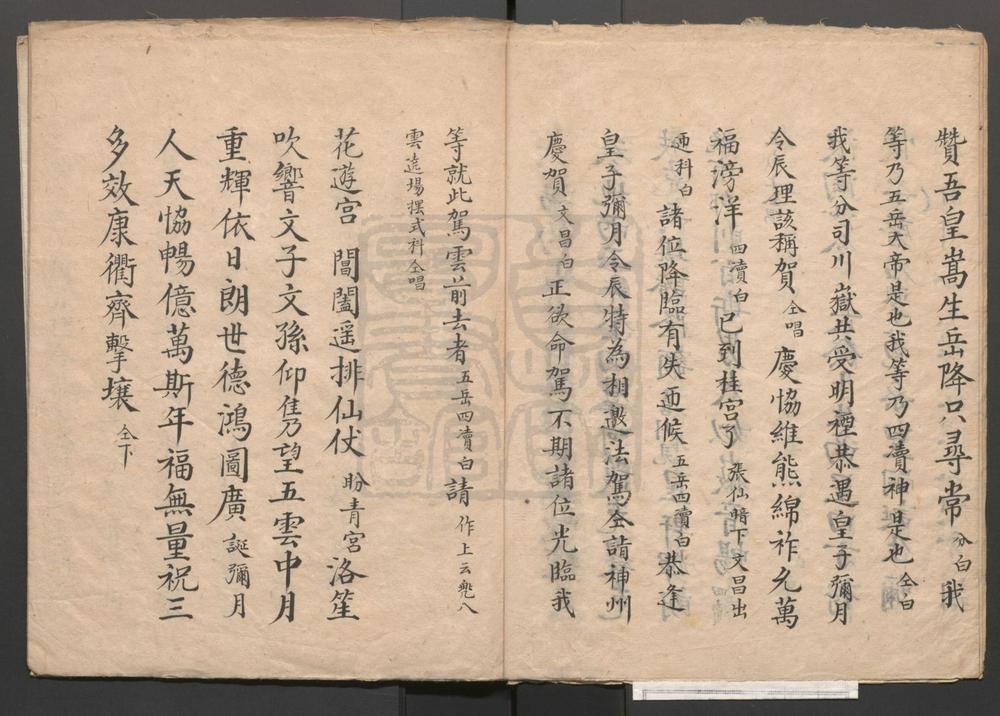 贊吾皇嵩生岳降只尋常分白我
等乃五岳大帝是也我等乃四瀆神是也仝白
我等分司川嶽共受明禋恭遇皇子彌月
令辰理該稱賀仝唱慶協維熊綿祚允萬
福滂洋四瀆白已到桂宮了張仙暗下文昌出
迊科白諸位降臨有失迊候五岳四瀆白恭逢
皇子彌月令辰特為相邀法駕仝詣神州
慶賀文昌白正欲命駕不期諸位光臨我
等就此駕雲前去者五岳四瀆白請作上云兠八
雲遶場擺式科仝唱
花遊宮閶闔遥排仙仗盼青宮洛笙
吹響文子文孫仰隹乃望五雲中月
重輝依日朗世德鴻圖廣誕彌月
人天協暢億萬斯年福無量祝三
多效康衢齊擊壤仝下